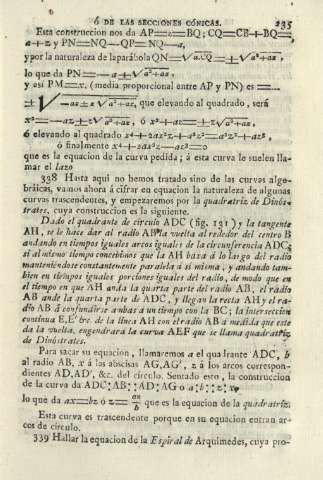 ó DE LAS SECCIONES CÓNICAS. 235
Esta construccion nos da AP=z=BQ; CQ=CB+BQ=
a+z y PN=NQ—QP=NQ—a,
y por la naturaleza de la parábola QN=√a.CQ=±√a²+az,
lo que da PN=—a±√a²+az,
y asi PM=x, (media proporcional entre AP y PN) es =...
±√—az±z√a²+az, que elevando al quadrado, será
x²=—az±z√a²+az, ó x²+az=±z√a²+az,
ó elevando al quadrado x⁴+2azx²+a²z²=a²z²+az³,
ó finalmente x⁴+2azx²—az³=0
que es la equacion de la curva pedida; á esta curva le suelen lla-
mar el lazo
338 Hasta aqui no hemos tratado sino de las curvas alge-
bráicas, vamos ahora á cifrar en equacion la naturaleza de algunas
curvas trascendentes, y empezaremos por la quadratriz de Dinós-
trates, cuya construccion es la siguiente.
Dado el quadrante de círculo ADC (fig. 131) y la tangente
AH, se le hace dar al radio AB la vuelta al rededor del centro B
andando en tiempos iguales arcos iguales de la circunferencia ADC;
si al mismo tiempo concebimos que la AH baxa á lo largo del radio
manteniéndose constantemente paralela á sí misma, y andando tam-
bien en tiempos iguales porciones iguales del radio, de modo que en
el tiempo en que AH anda la quarta parte del radio AB, el radio
AB ande la quarta parte de ADC, y llegan la recta AH y el ra-
dio AB á confundirse ambas á un tiempo con la BC; la interseccion
continua E,E' &c. de la línea AH con el radio AB á medida que este
da la vuelta, engendrará la curva AEF que se llama quadratriz
de Dinóstrates.
Para sacar su equacion, llamaremos a el quadrante ADC, b
al radio AB, x á las abscisas AG,AG', z á los arcos correspon-
dientes AD,AD', &c. del círculo. Sentado esto, la construccion
de la curva da ADC:AB::AD:AG o a:b::z:x,
lo que da ax=bz ó z=ax/b que es la equacion de la quadratriz.
Esta curva es trascendente porque en su equacion entran ar-
cos de círculo.
339 Hallar la equacion de la Espiral de Arquímedes, cuya pro-